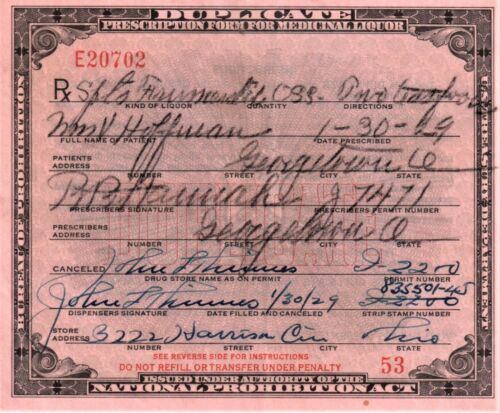 DUPLICATE
PRESCRIPTION FORM FOR MEDICINAL LIQUOR
E20702
Rx Spts Frumenti
KIND OF LIQUOR QUANTITY DIRECTIONS
Wm Hoffman 1-30-29
FULL NAME OF PATIENT DATE PRESCRIBED
Georgetown O
PATIENTS ADDRESS NUMBER STREET CITY STATE
27471
PRESCRIBERS SIGNATURE PRESCRIBERS PERMIT NUMBER
Georgetown O
PRESCRIBERS ADDRESS NUMBER STREET CITY STATE
CANCELED John 2200
DRUG STORE NAME AS ON PERMIT PERMIT NUMBER
John 1/30/29
DISPENSERS SIGNATURE DATE FILLED AND CANCELED STRIP STAMP NUMBER
STORE ADDRESS 3222 Harrison Cin Ohio
NUMBER STREET CITY STATE
SEE REVERSE SIDE FOR INSTRUCTIONS
DO NOT REFILL OR TRANSFER UNDER PENALTY 53
ISSUED UNDER AUTHORITY OF THE
NATIONAL PROHIBITION ACT